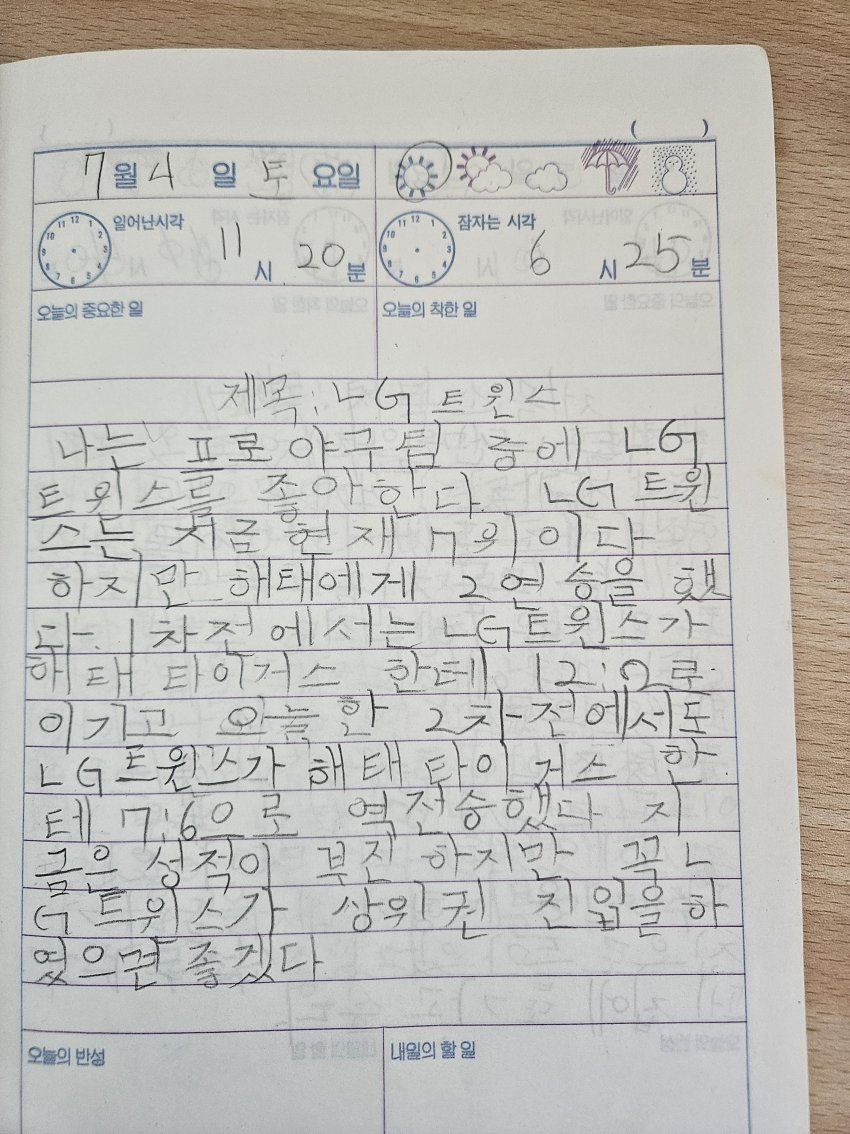 ( )
7월 4일 토요일
일어난시각 11시 20분 잠자는 시각 6시 25분
12 1 2 3 4 5 6 7 8 9 10 11
12 1 2 3 4 5 6 7 8 9 10 11
오늘의 중요한 일 오늘의 착한 일
제목: LG트윈스
나는 프로 야구팀 중에 LG
트윈스를 좋아한다. LG트윈
스는 지금현재 7위이다
하지만 해태에게 2연승을 했
다. 1차전에서는 LG트윈스가
해태 타이거스 한테 12:2로
이기고 오늘 한 2차전에서도
LG트윈스가 해태 타이거스 한
테 7:6으로 역전승했다 지
금은 성적이 부진 하지만 꼭 L
G트윈스가 상위권 진입을 하
였으면 좋겠다
오늘의 반성 내일의 할 일